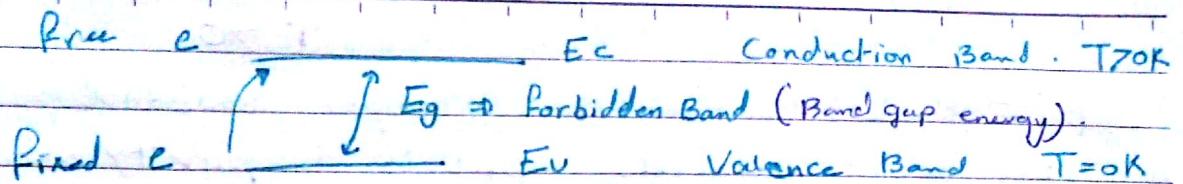 free e Ec Conduction Band. T>0K
Eg ⇒ forbidden Band (Band gap energy).
fixed e Ev Valence Band T=0K